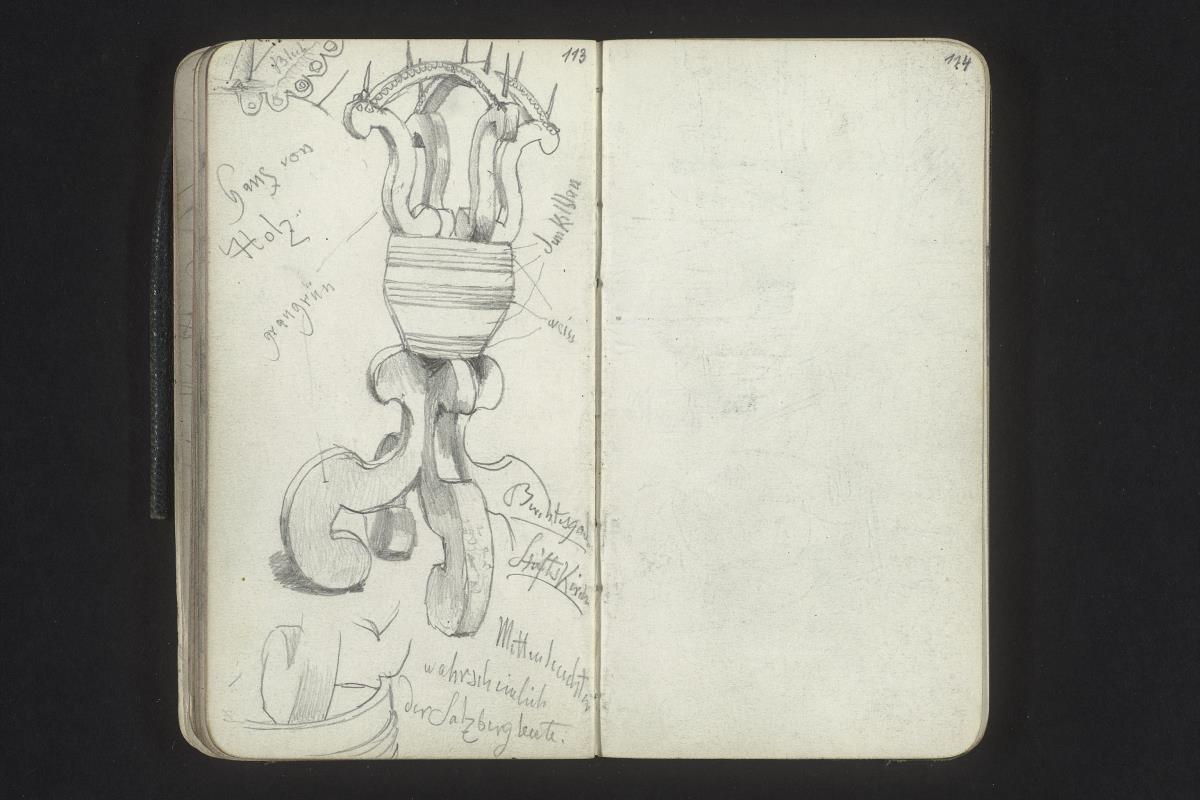 113
114
Blech
Ganz von
Holz
graugrün
dunkelblau
weiss
Berchtesgad
StiftsKirche
Mittenleuchter
wahrscheinlich
der Salzbergleute.